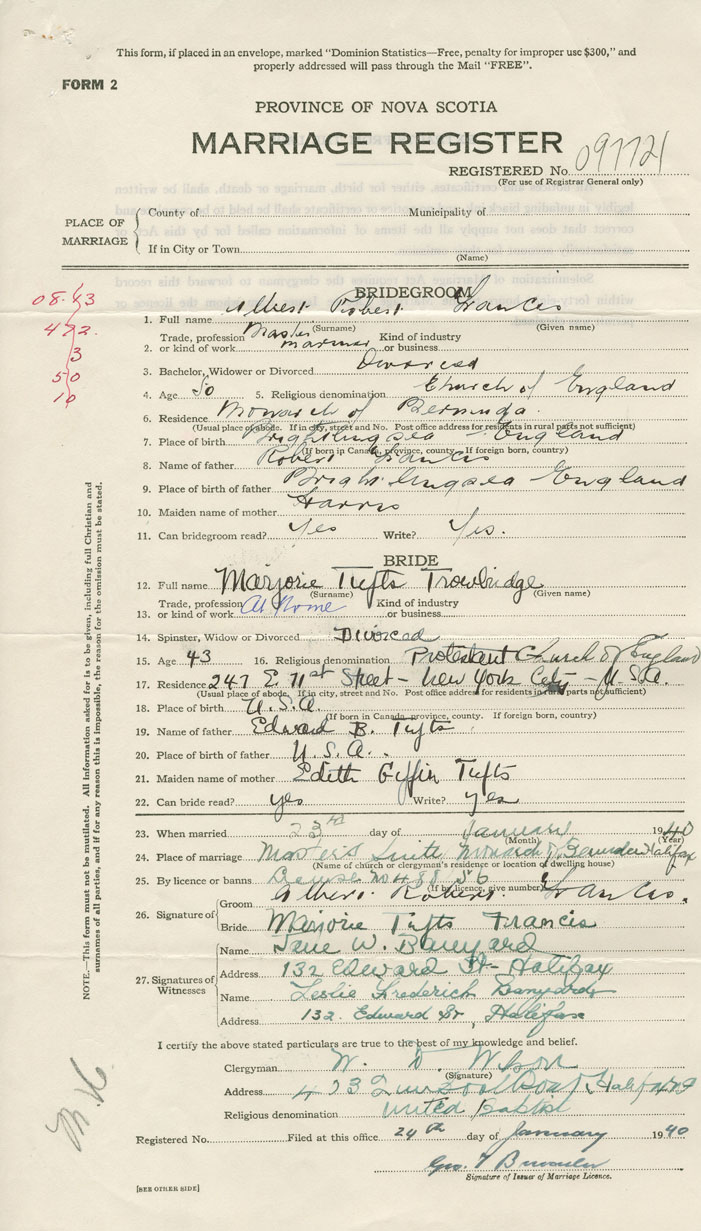 This form, if placed in an envelope, marked "Dominion Statistics—Free, penalty for improper use $300," and
properly addressed will pass through the Mail "FREE".
FORM 2
PROVINCE OF NOVA SCOTIA
MARRIAGE REGISTER
REGISTERED No. 097721
(For use of Registrar General only)
PLACE OF MARRIAGE
County of
Municipality of
If in City or Town
(Name)
08.43
472.
3
50
10
BRIDEGROOM
1. Full name Albert Robert Francis
(Surname) (Given name)
2. Trade, profession or kind of work Master mariner Kind of industry or business
3. Bachelor, Widower or Divorced Divorced
4. Age 50 5. Religious denomination Church of England
6. Residence Monarch of Bermuda.
(Usual place of abode. If in city, street and No. Post office address for residents in rural parts not sufficient)
7. Place of birth Brightlingsea - England
(If born in Canada, province, county. If foreign born, country)
8. Name of father Robert Francis
9. Place of birth of father Brightlingsea England
10. Maiden name of mother Harris
11. Can bridegroom read? Yes Write? Yes.
BRIDE
12. Full name Marjorie Tufts Trowbridge
(Surname) (Given name)
13. Trade, profession or kind of work At Home Kind of industry or business
14. Spinster, Widow or Divorced Divorced
15. Age 43 16. Religious denomination Protestant Church of England
17. Residence 247 E. 71st Street - New York City - U.S.A.
(Usual place of abode. If in city, street and No. Post office address for residents in rural parts not sufficient)
18. Place of birth U.S.A.
(If born in Canada, province, county. If foreign born, country)
19. Name of father Edward B. Tufts
20. Place of birth of father U.S.A.
21. Maiden name of mother Edith Giffin Tufts
22. Can bride read? yes Write? yes
23. When married 23rd day of January 1940
(Month) (Year)
24. Place of marriage Master's Suite Monarch of Bermuda Halifax
(Name of church or clergyman's residence or location of dwelling house)
25. By licence or banns License No
(If by licence, give number)
26. Signature of
Groom Albert Robert Francis.
Bride Marjorie Tufts Francis
27. Signatures of Witnesses
Name Jane W. Banyard
Address 132 Edward St - Halifax
Name Leslie Frederick Banyard
Address 132 Edward St, Halifax
I certify the above stated particulars are true to the best of my knowledge and belief.
Clergyman W. D. Wilson
(Signature)
Address 423 Road Halifax
Religious denomination United Baptist
Registered No. Filed at this office 24th day of January 1940
Geo.
Signature of Issuer of Marriage Licence.
[SEE OTHER SIDE]
NOTE.—This form must not be mutilated. All Information asked for is to be given, including full Christian and
surnames of all parties, and if for any reason this is impossible, the reason for the omission must be stated.